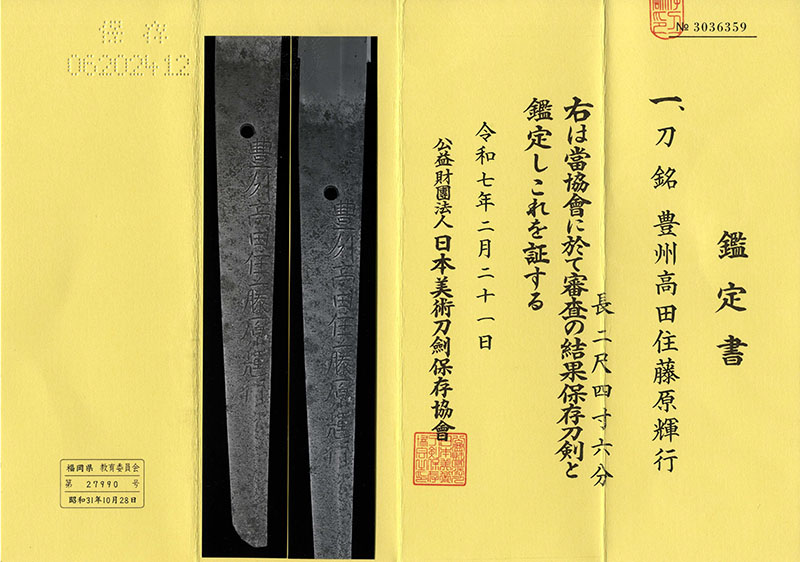 № 3036359
鑑定書
一、刀 銘 豊州高田住藤原輝行
長二尺四寸六分
右は當協會に於て審査の結果保存刀剣と
鑑定しこれを証する
令和七年二月二十一日
公益財團法人 日本美術刀劍保存協會
豊州高田住藤原輝行
豊州高田住藤原輝行
保存
06202412
福岡県 教育委員会
第 27990 号
昭和31年10月28日